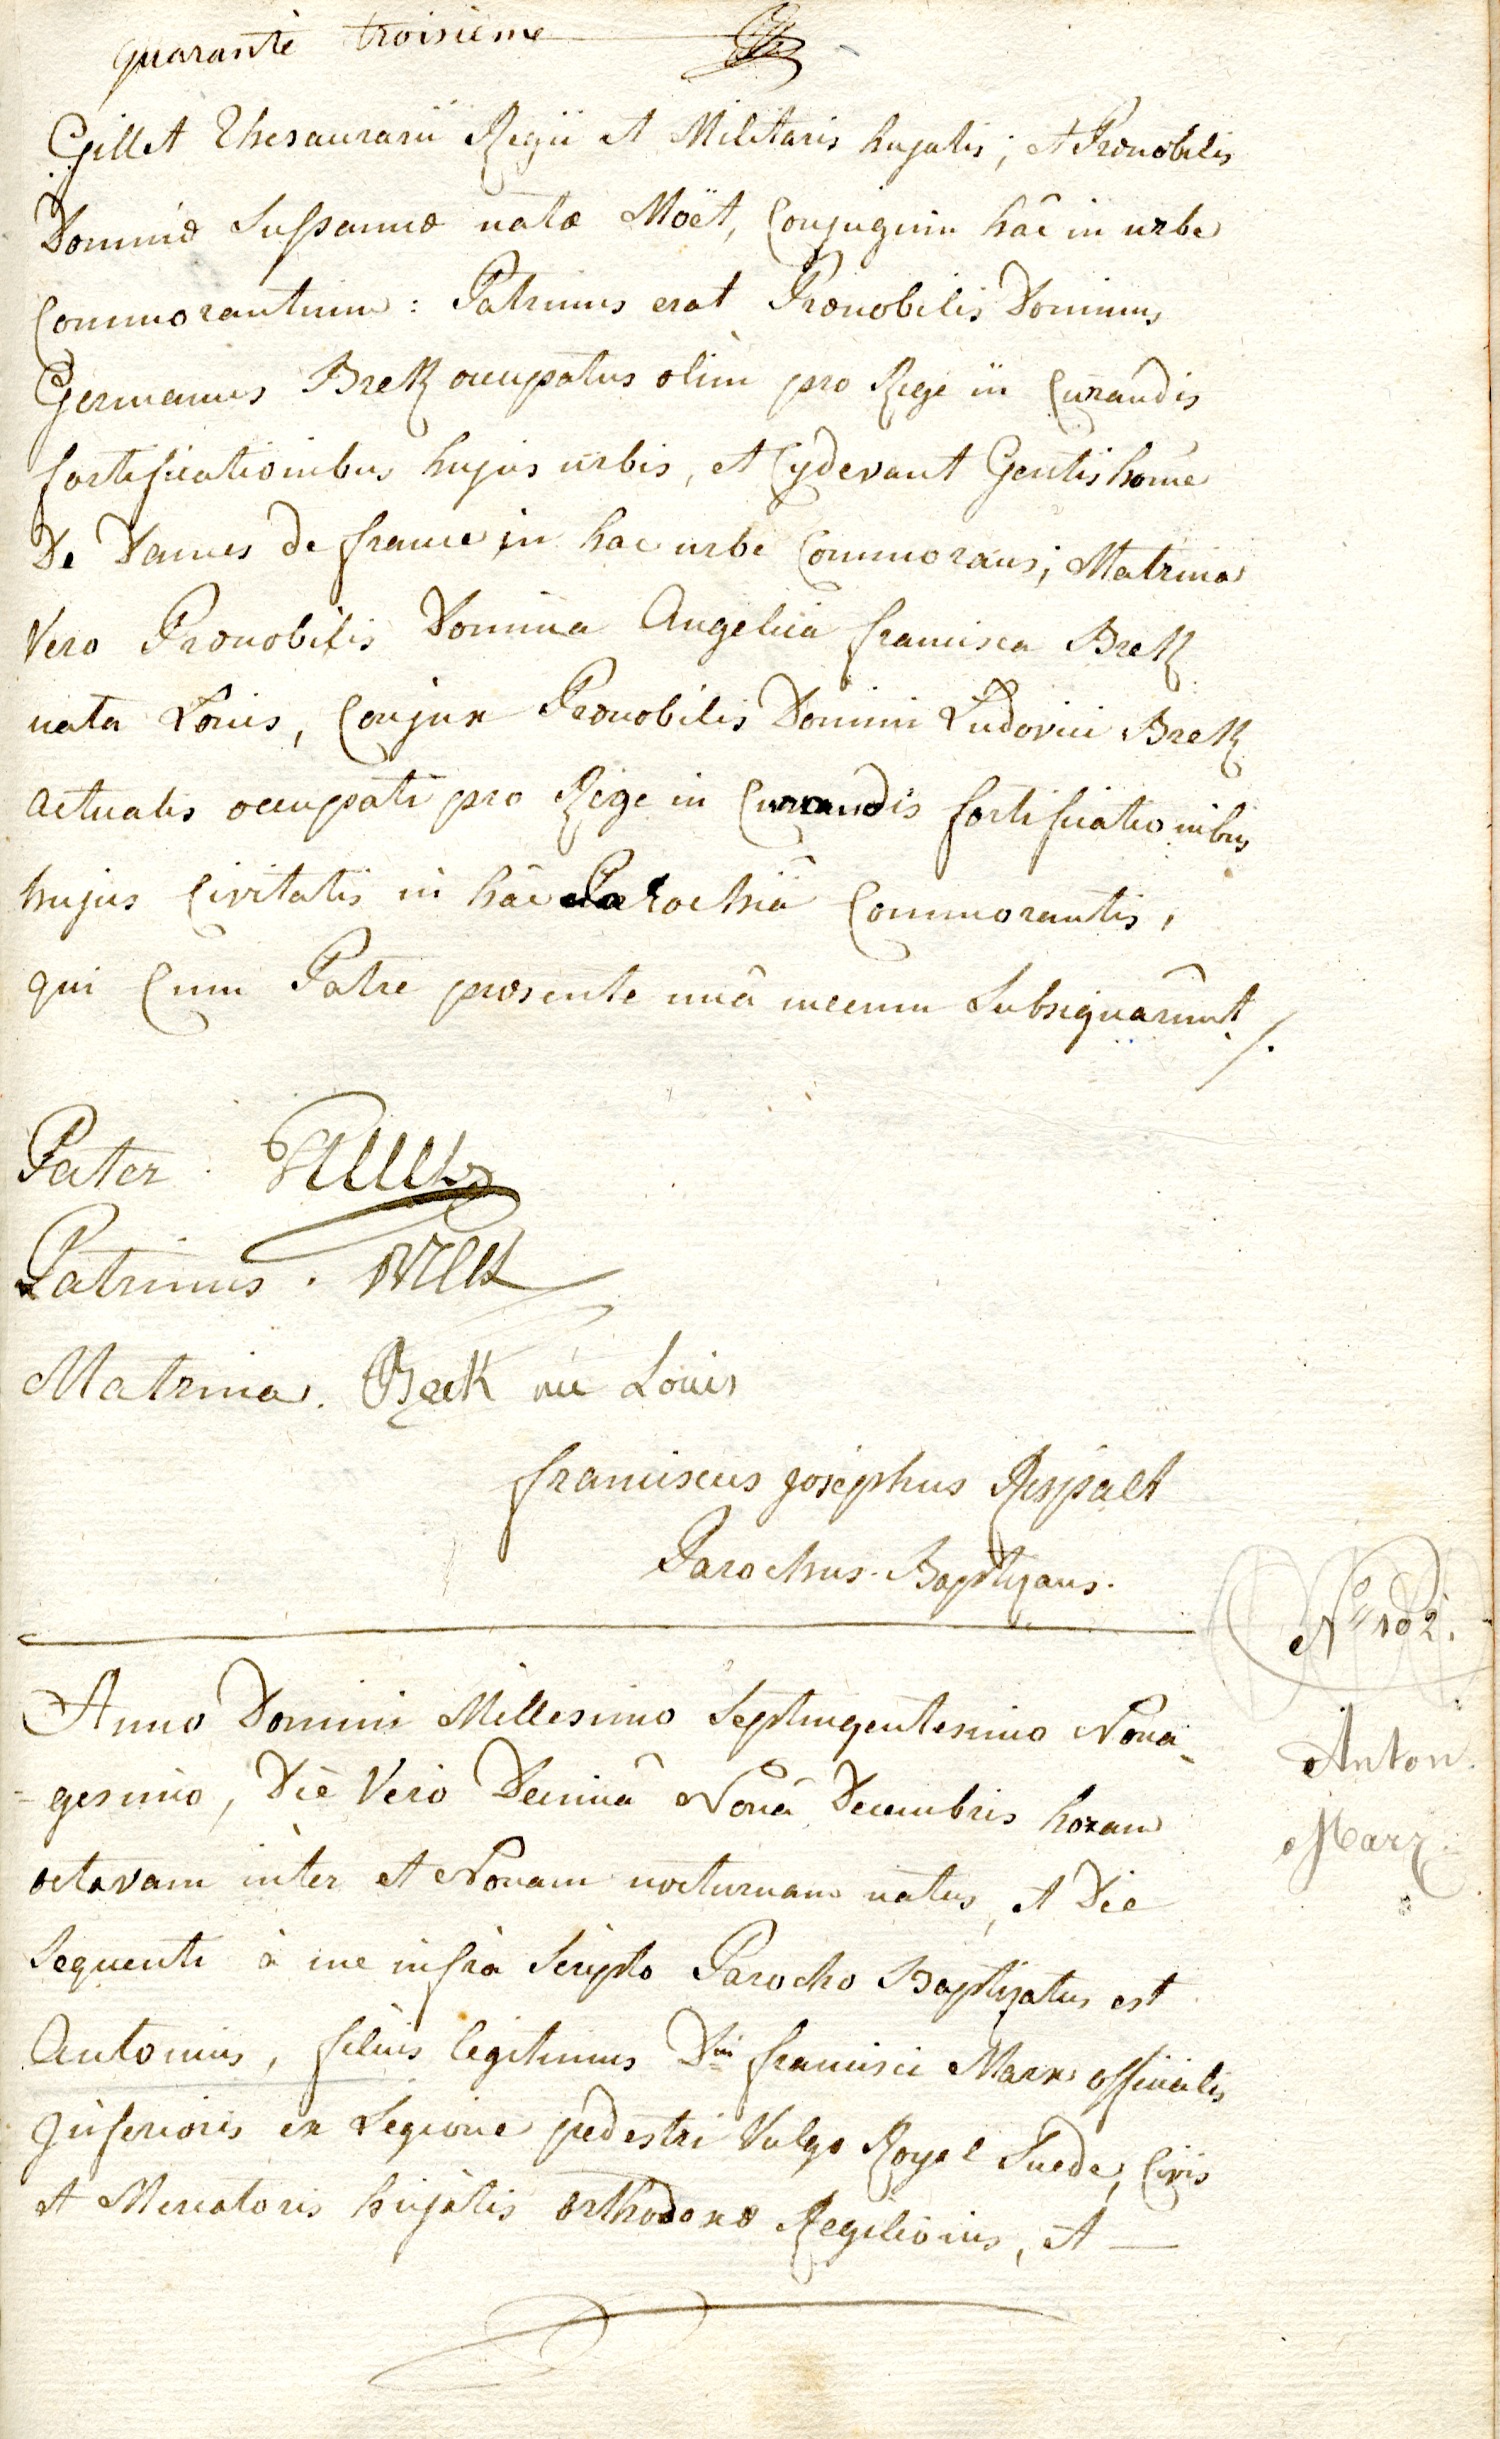 quarante troisieme
Gillet Thesaurarii Regii et Militaris hujatis; et Prænobilis
Dominæ Sussannæ natæ Moët, Conjugum hâc in urbe
Commorantium: Patrinus erat Prænobilis Dominus
Germanus Breck occupatus olim pro Rege in Curandis
fortificationibus hujus urbis, et Cydevant Gentishome
De Dames de france in hac urbe Commorans; Matrina
Vero Prænobilis Domina Angelica francisca Breck
nata Louis, Conjux Prænobilis Domini Ludovici Breck
actualis occupati pro Rege in Currandis fortificationibus
hujus Civitatis in hâc Parochiâ Commorantis,
qui Cum Patre præsente unâ mecum Subsignârunt /.
Pater.
Patrinus. Breck
Matrina. Breck né Louis
franciscus josephus Respalt
Parochus Baptizans.
N.º 102.
Anton
Marx
Anno Domini Millesimo Septingentesimo Nona-
-gesimo, Die Vero Decimâ Nonâ Decembris horam
octavam inter et Nonam nocturnam natus, et Die
Sequenti à me infra Scripto Parocho Baptizatus est
Antonius, filius legitimus Dni francisci Marx officialis
Inferioris ex Legione pedestri Vulgo Royal Suede, Civis
et Mercatoris hujatis orthodoxæ Regilionis, et —